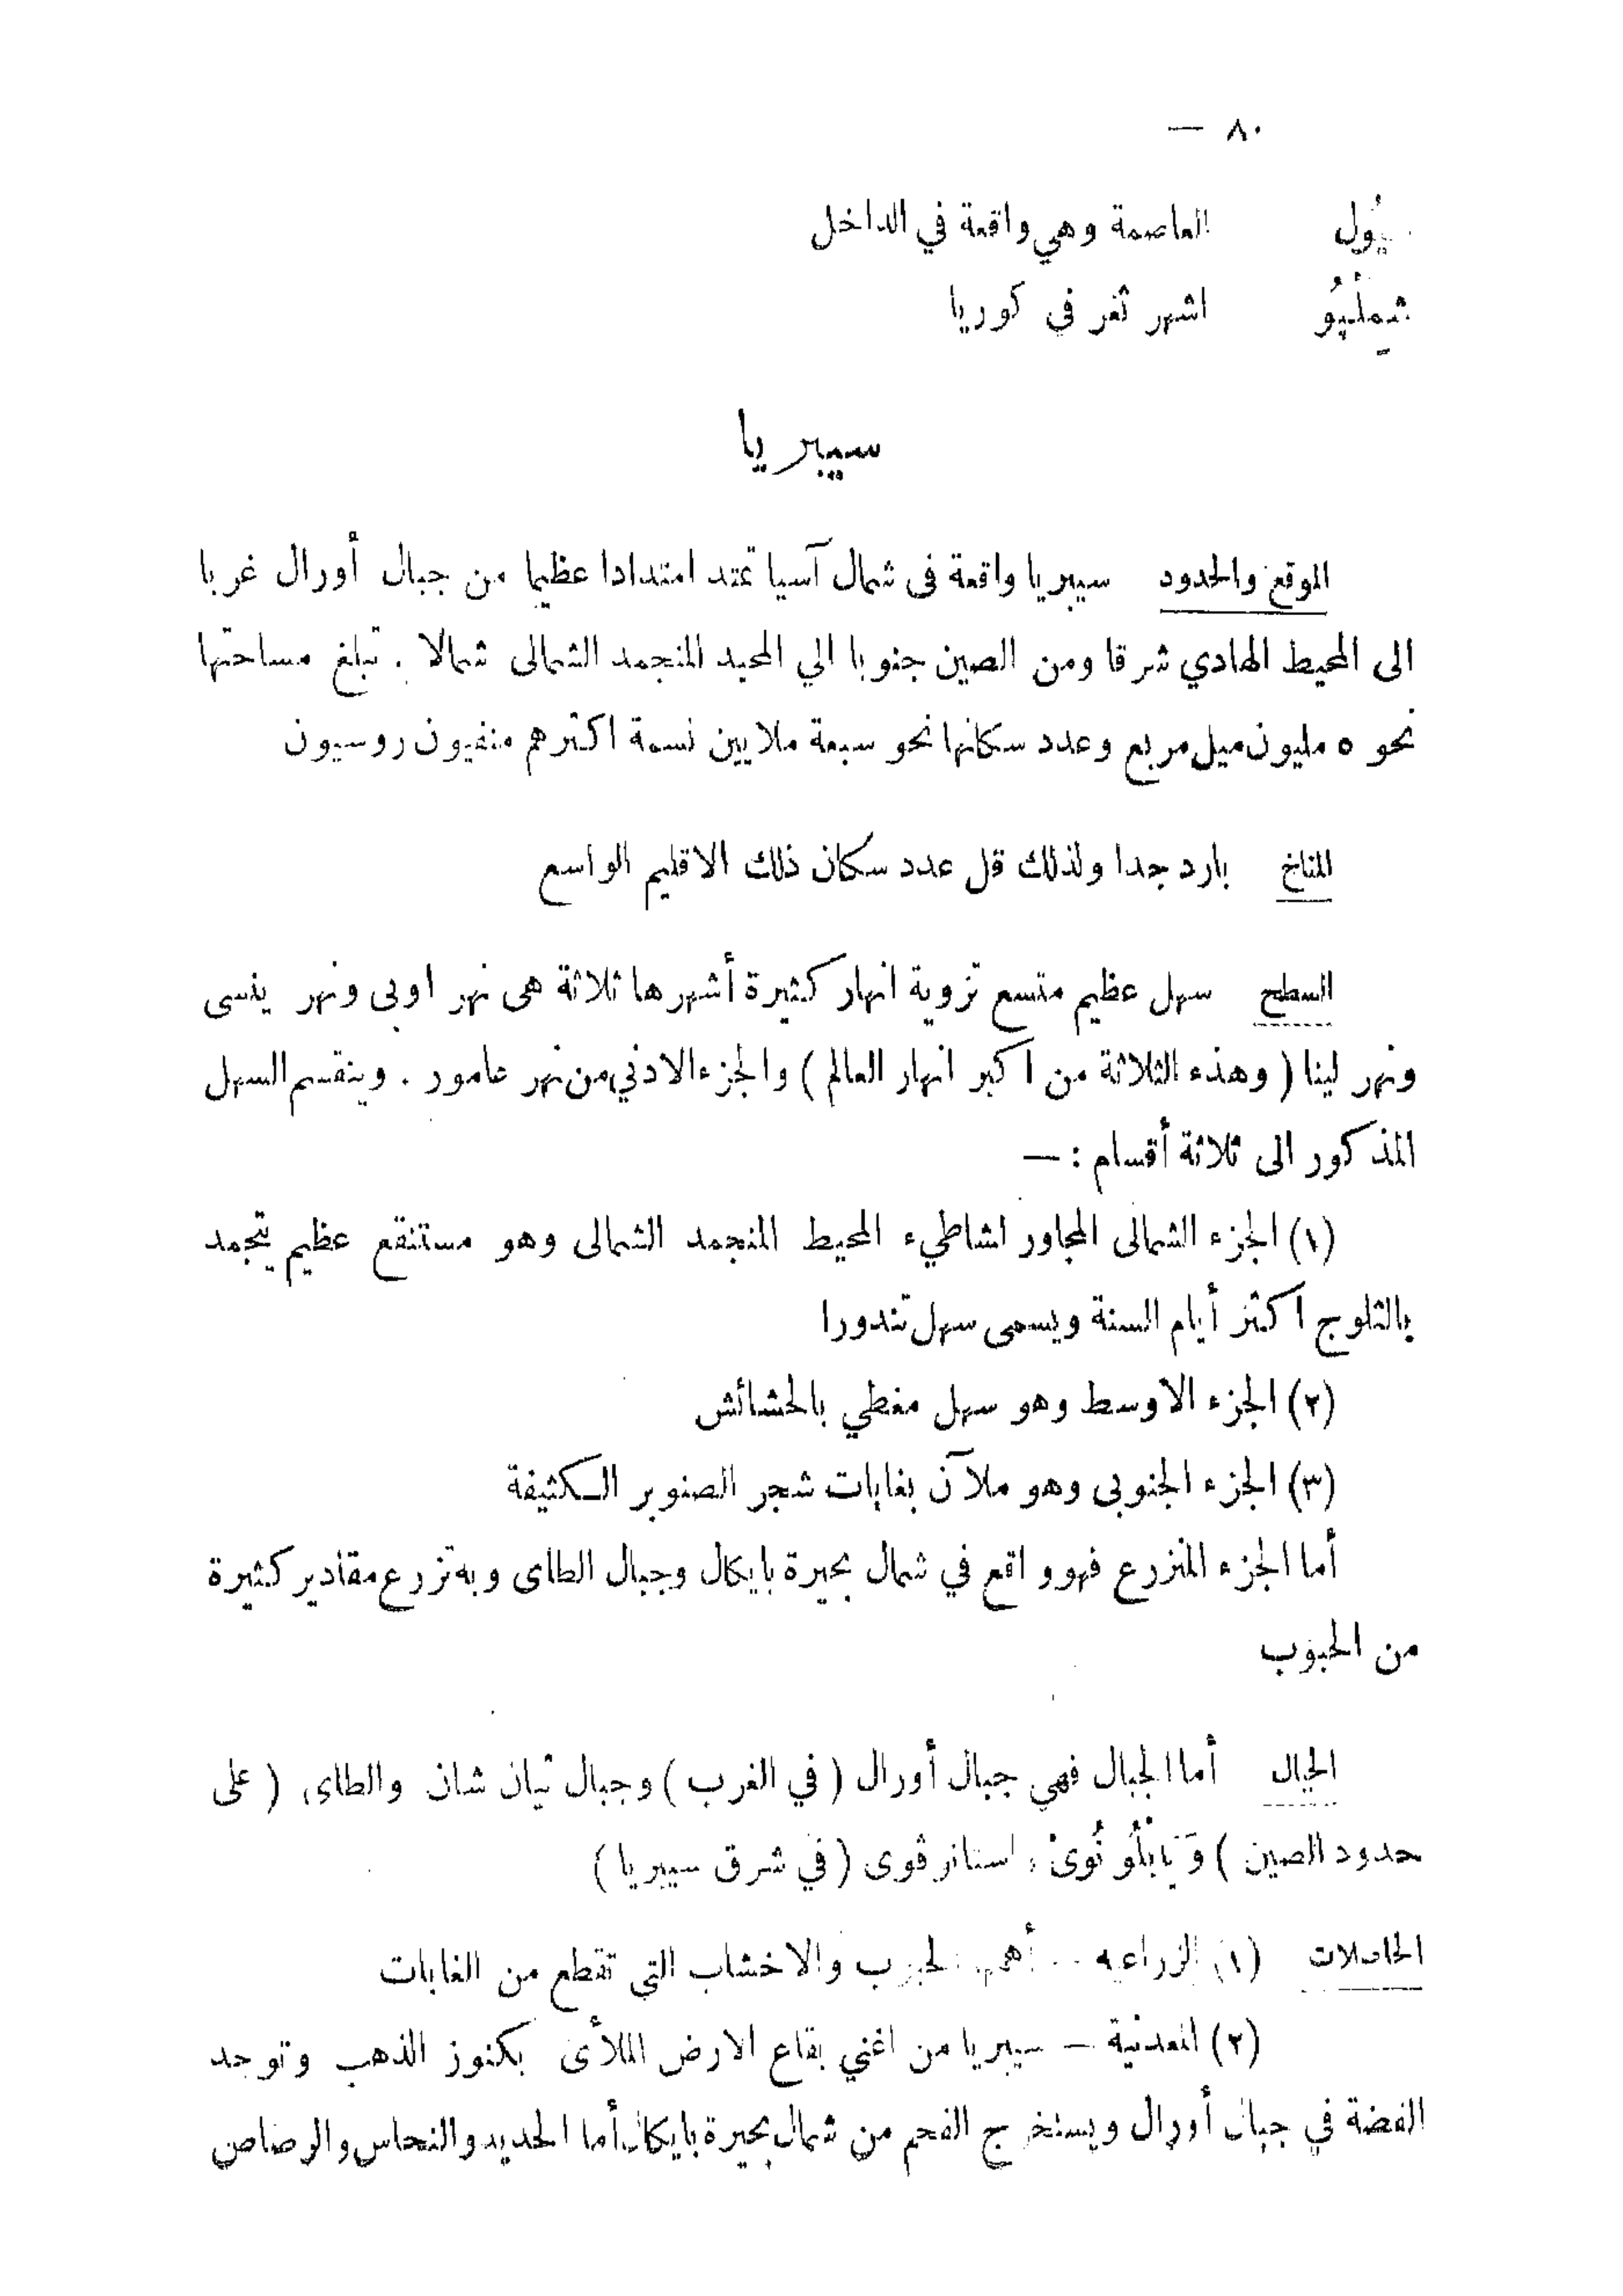 ٨٠ —
العاصمة وهي واقعة في الداخل
شِمُلْپُو اشهر ثغر في كوريا
سيبريا
الموقع والحدود سيبريا واقعة فى شمال آسيا تمتد امتدادا عظيما من جبال أورال غربا
الى المحيط الهادي شرقا ومن الصين جنوبا الي المحيد المنجمد الشمالى شمالا . تبلغ مساحتها
نحو ٥ مليون ميل مربع وعدد سكانها نحو سبعة ملايين نسمة اكثرهم منفيون روسيون
المناخ بارد جدا ولذلك قل عدد سكان ذلك الاقليم الواسع
السطح سهل عظيم متسع تزوية انهار كثيرة أشهرها ثلاثة هى نهر اوبى ونهر ينسى
ونهر لينا ( وهذه الثلاثة من اكبر انهار العالم ) والجزء الادني من نهر عامور . وينقسم السهل
المذكور الى ثلاثة أقسام : —
(١) الجزء الشمالى المجاور لشاطيء المحيط المنجمد الشمالى وهو مستنقع عظيم يتجمد
بالثلوج اكثر أيام السنة ويسمى سهل تندورا
(٢) الجزء الاوسط وهو سهل مغطي بالحشائش
(٣) الجزء الجنوبى وهو ملآن بغابات شجر الصنوبر الكثيفة
أما الجزء المنزرع فهو واقع في شمال بحيرة بايكال وجبال الطاى وبه تزرع مقادير كثيرة
من الحبوب
الجبال أما الجبال فهي جبال أورال ( في الغرب ) وجبال تيان شان والطاى ( على
حدود الصين ) وَيَابْلُو نُوىْ استانوڤوى ( في شرق سيبريا )
الحاصلات (١) الزراعيه — أهمها الحبوب والاخشاب التى تقطع من الغابات
(٢) المعدنية — سيبريا من اغني بقاع الارض الملأى بكنوز الذهب وتوجد
الفضة في جبال أورال ويستخرج الفحم من شمال بحيرة بايكال أما الحديد والنحاس والرصاص